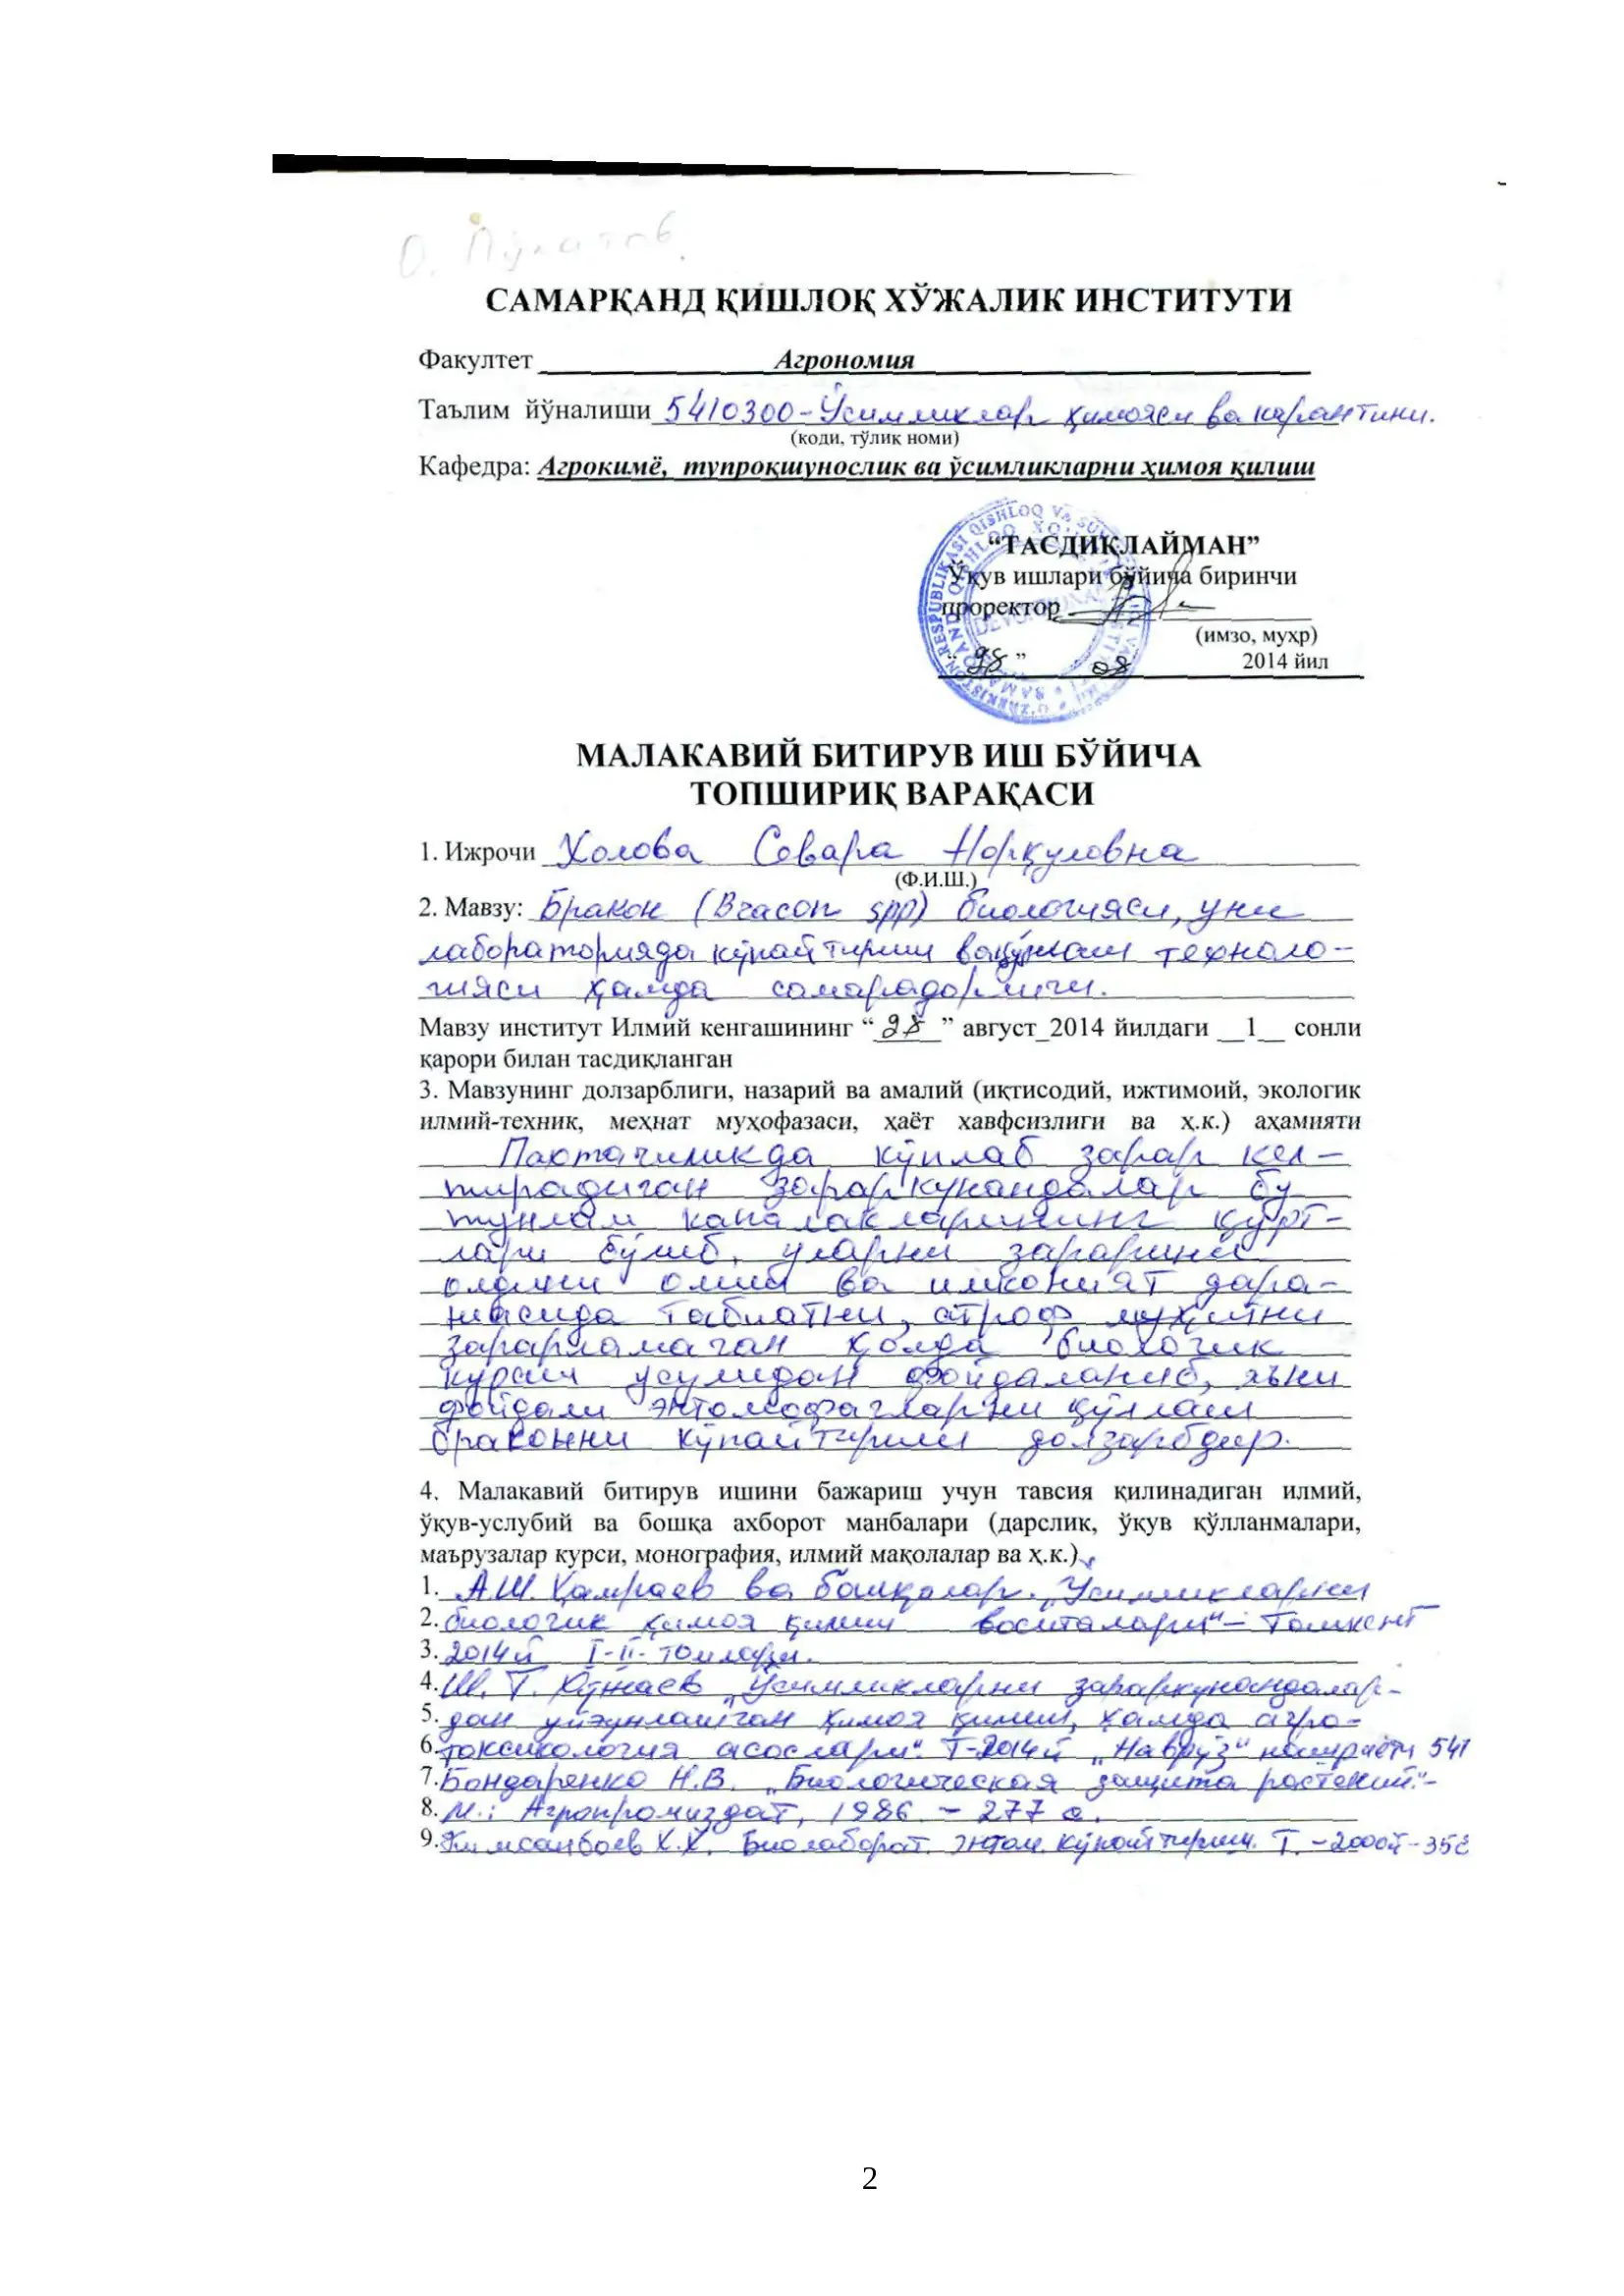 О. Пўлатов.
САМАРҚАНД ҚИШЛОҚ ХЎЖАЛИК ИНСТИТУТИ
Факултет Агрономия
Таълим йўналиши 5410300-Ўсимликлар ҳимояси ва карантини.
(коди, тўлиқ номи)
Кафедра: Агрокимё, тупроқшунослик ва ўсимликларни ҳимоя қилиш
“ТАСДИҚЛАЙМАН”
Ўқув ишлари бўйича биринчи
проректор
(имзо, муҳр)
“ 28 ” 08 2014 йил
МАЛАКАВИЙ БИТИРУВ ИШ БЎЙИЧА
ТОПШИРИҚ ВАРАҚАСИ
1. Ижрочи Холова Севара Норқуловна
(Ф.И.Ш.)
2. Мавзу: Бракон (Bracon spp) биологияси, уни
лабораторияда кўпайтириш ва қўллаш техноло-
гияси ҳамда самарадорлиги.
Мавзу институт Илмий кенгашининг “ 28 ” август_2014 йилдаги __1__ сонли
қарори билан тасдиқланган
3. Мавзунинг долзарблиги, назарий ва амалий (иқтисодий, ижтимоий, экологик
илмий-техник, меҳнат муҳофазаси, ҳаёт хавфсизлиги ва ҳ.к.) аҳамияти
Пахтачиликда кўплаб зарар кел-
тирадиган зараркунандалар бу
тунлам капалакларининг қурт-
лари бўлиб, уларни зарарини
олдини олиш ва имконият дара-
жасида табиатни, атроф муҳитни
зарарламаган ҳолда биологик
кураш усулидан фойдаланиб, яъни
фойдали энтомофагларни қўллаш
браконни кўпайтириш долзарбдир.
4. Малакавий битирув ишини бажариш учун тавсия қилинадиган илмий,
ўқув-услубий ва бошқа ахборот манбалари (дарслик, ўқув қўлланмалари,
маърузалар курси, монография, илмий мақолалар ва ҳ.к.)
1. А.Ш. Ҳамраев ва бошқалар. „Ўсимликларни
2. биологик ҳимоя қилиш воситалари“ – Тошкент
3. 2014й I-II- томлари.
4. Ш. Т. Хўжаев „Ўсимликларни зараркунандалар-
5. дан уйғунлашган ҳимоя қилиш, ҳамда агро-
6. токсикология асослари“. Т-2014й „Наврўз“ нашриёти 541
7. Бондаренко Н.В. „Биологическая защита растений.“-
8. М.: Агропромиздат, 1986. – 277 с.
9. Кимсанбоев Х.Х. Биолаборат. энтом. кўпайтириш. Т. – 2000й – 35б
2